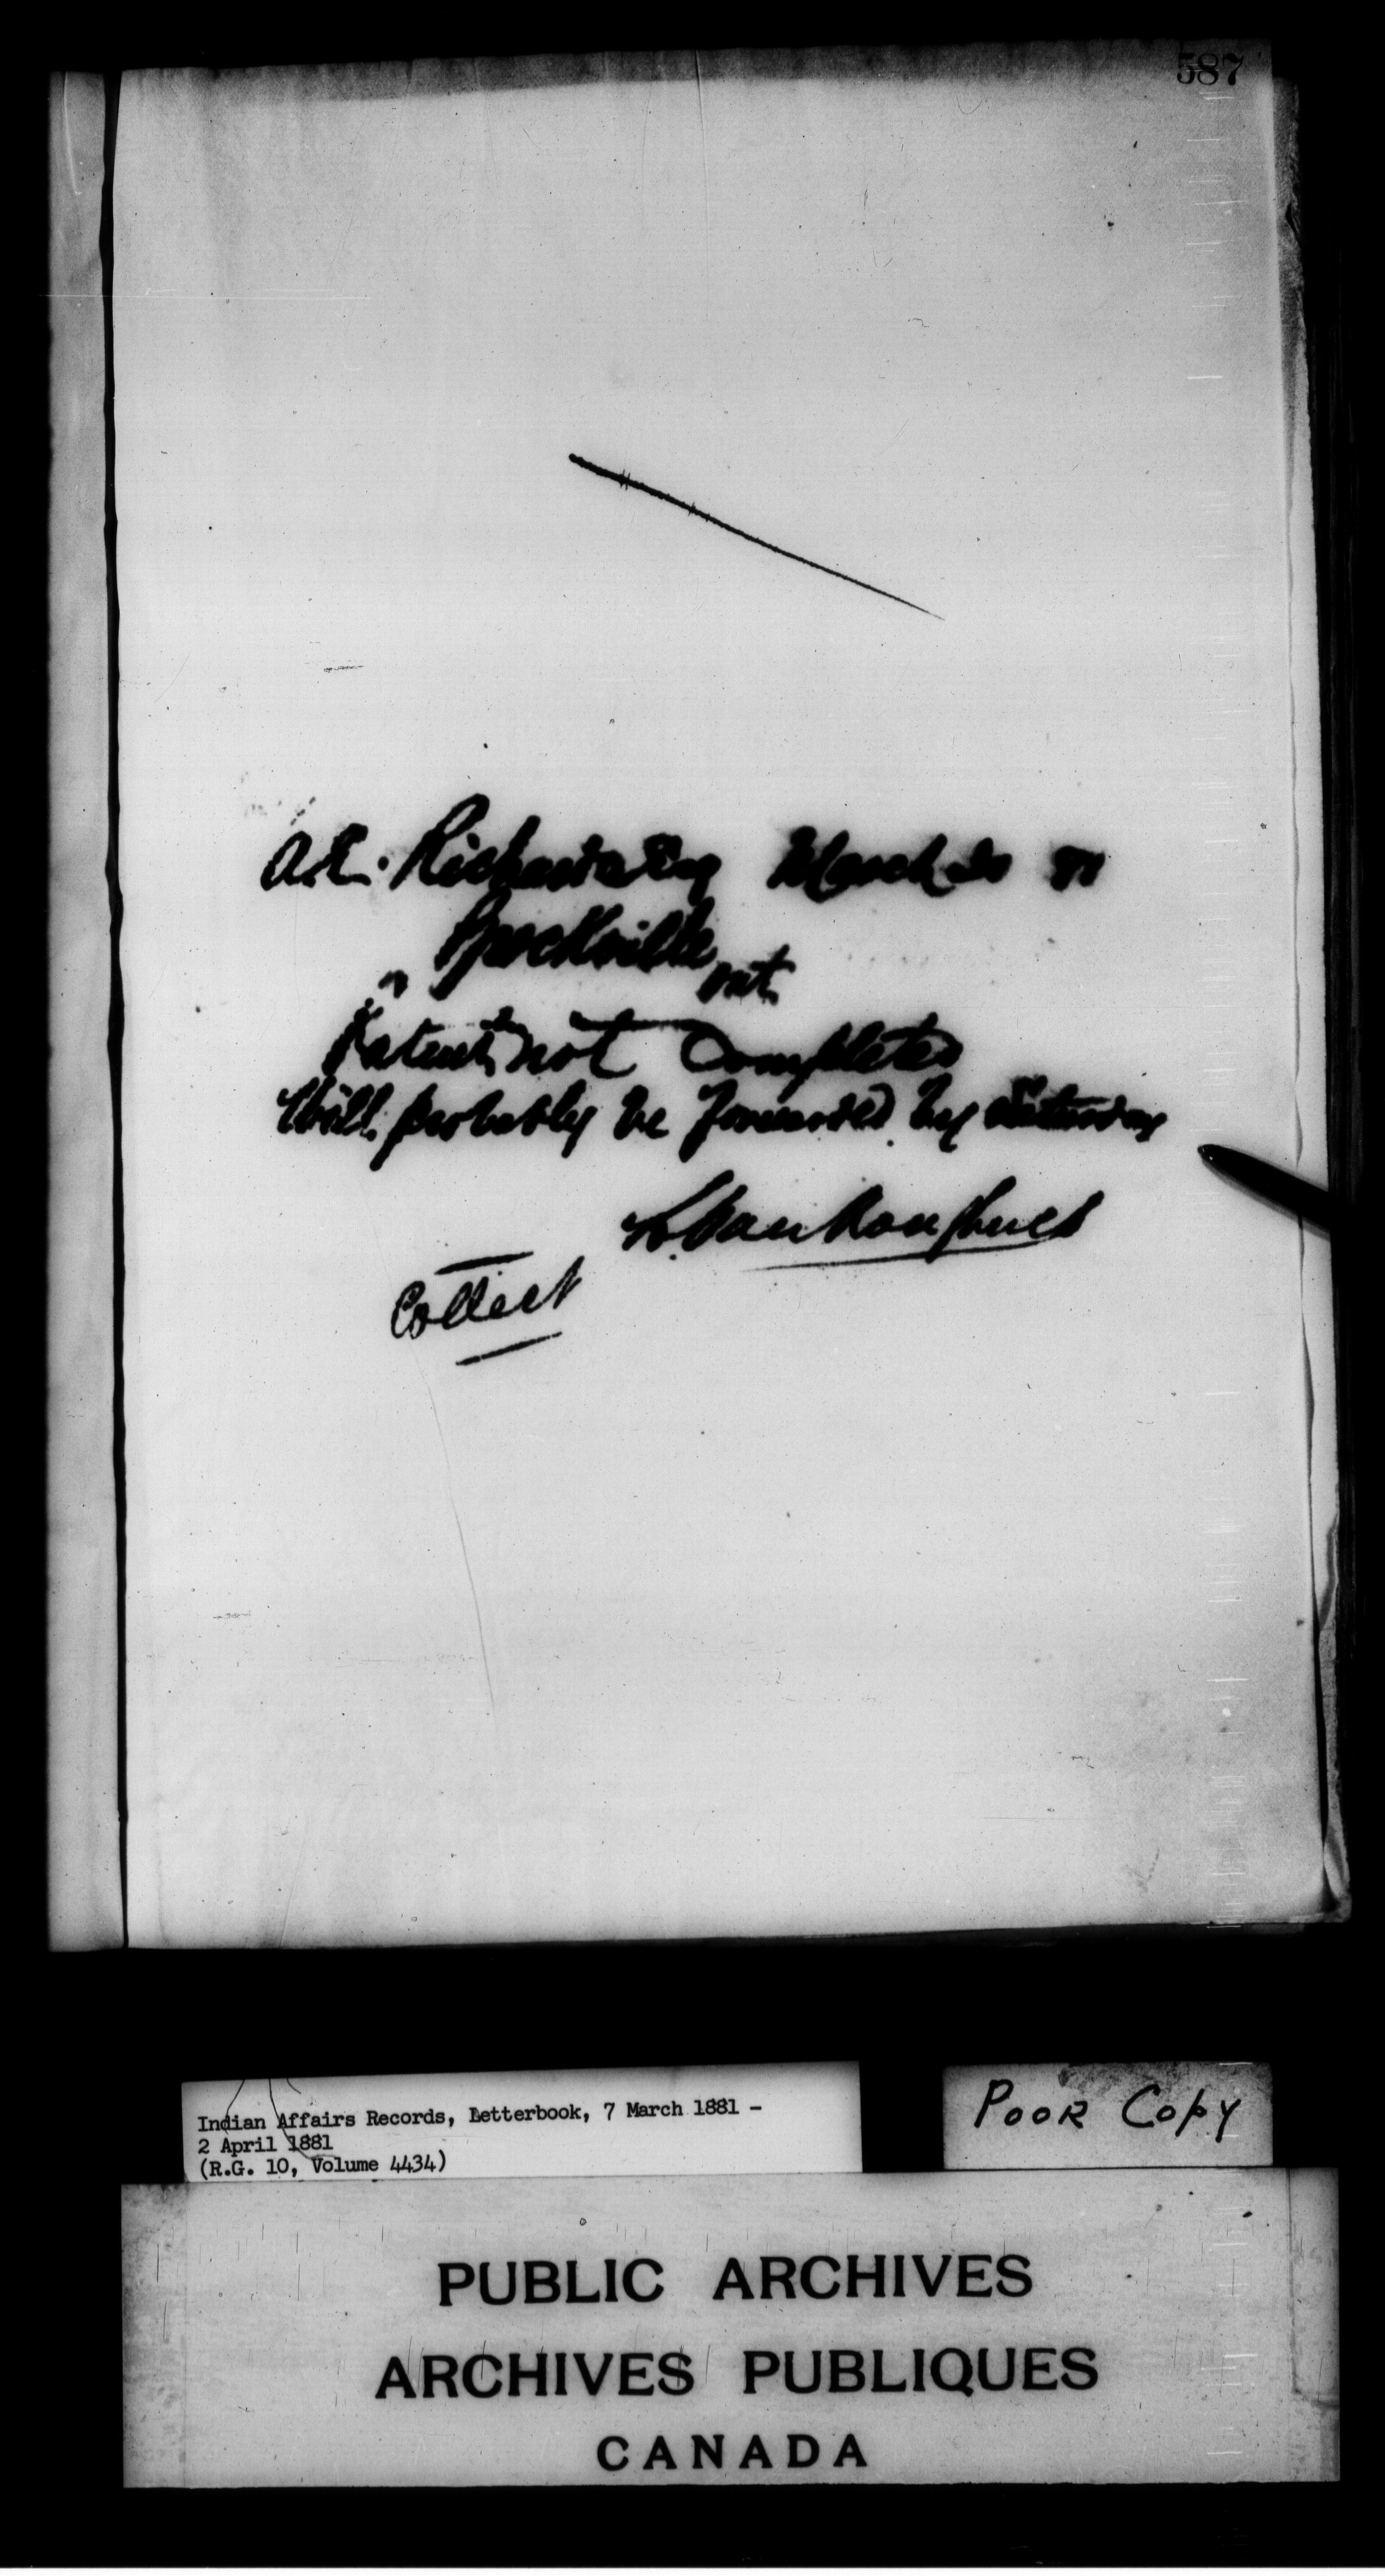 587
A.E. Richards Esq March 30 81
Brockville
Ont
Patent not Completed
Will probably be forwarded by Saturday
L. Van Koughnet
Collect
Indian Affairs Records, Letterbook, 7 March 1881 -
2 April 1881
(R.G. 10, Volume 4434)
POOR Copy
PUBLIC ARCHIVES
ARCHIVES PUBLIQUES
CANADA